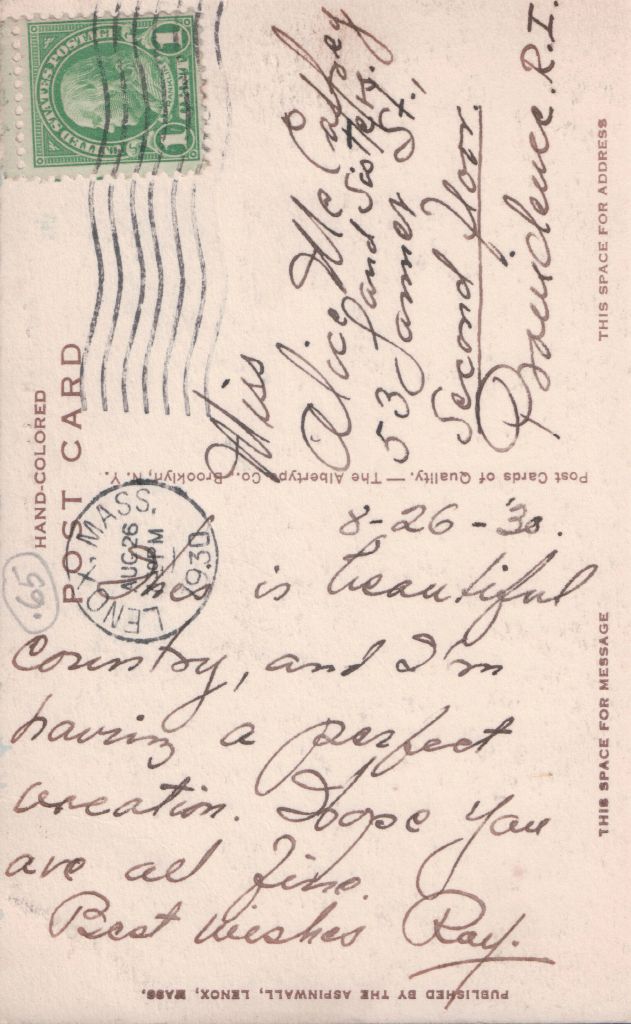 UNITED STATES POSTAGE
1 CENT 1
HAND-COLORED
POST CARD
LENOX, MASS.
AUG 26
PM
1930
.65
Miss
Alice Mc Caffrey
and Sisters.
53 James St.,
Second Floor.
Providence. R.I.
THIS SPACE FOR ADDRESS
Post Cards of Quality. — The Albertype Co., Brooklyn, N. Y.
8-26-'30.
This is beautiful
country, and I'm
having a perfect
vacation. Hope you
are all fine.
Best wishes Ray.
THIS SPACE FOR MESSAGE
PUBLISHED BY THE ASPINWALL, LENOX, MASS.